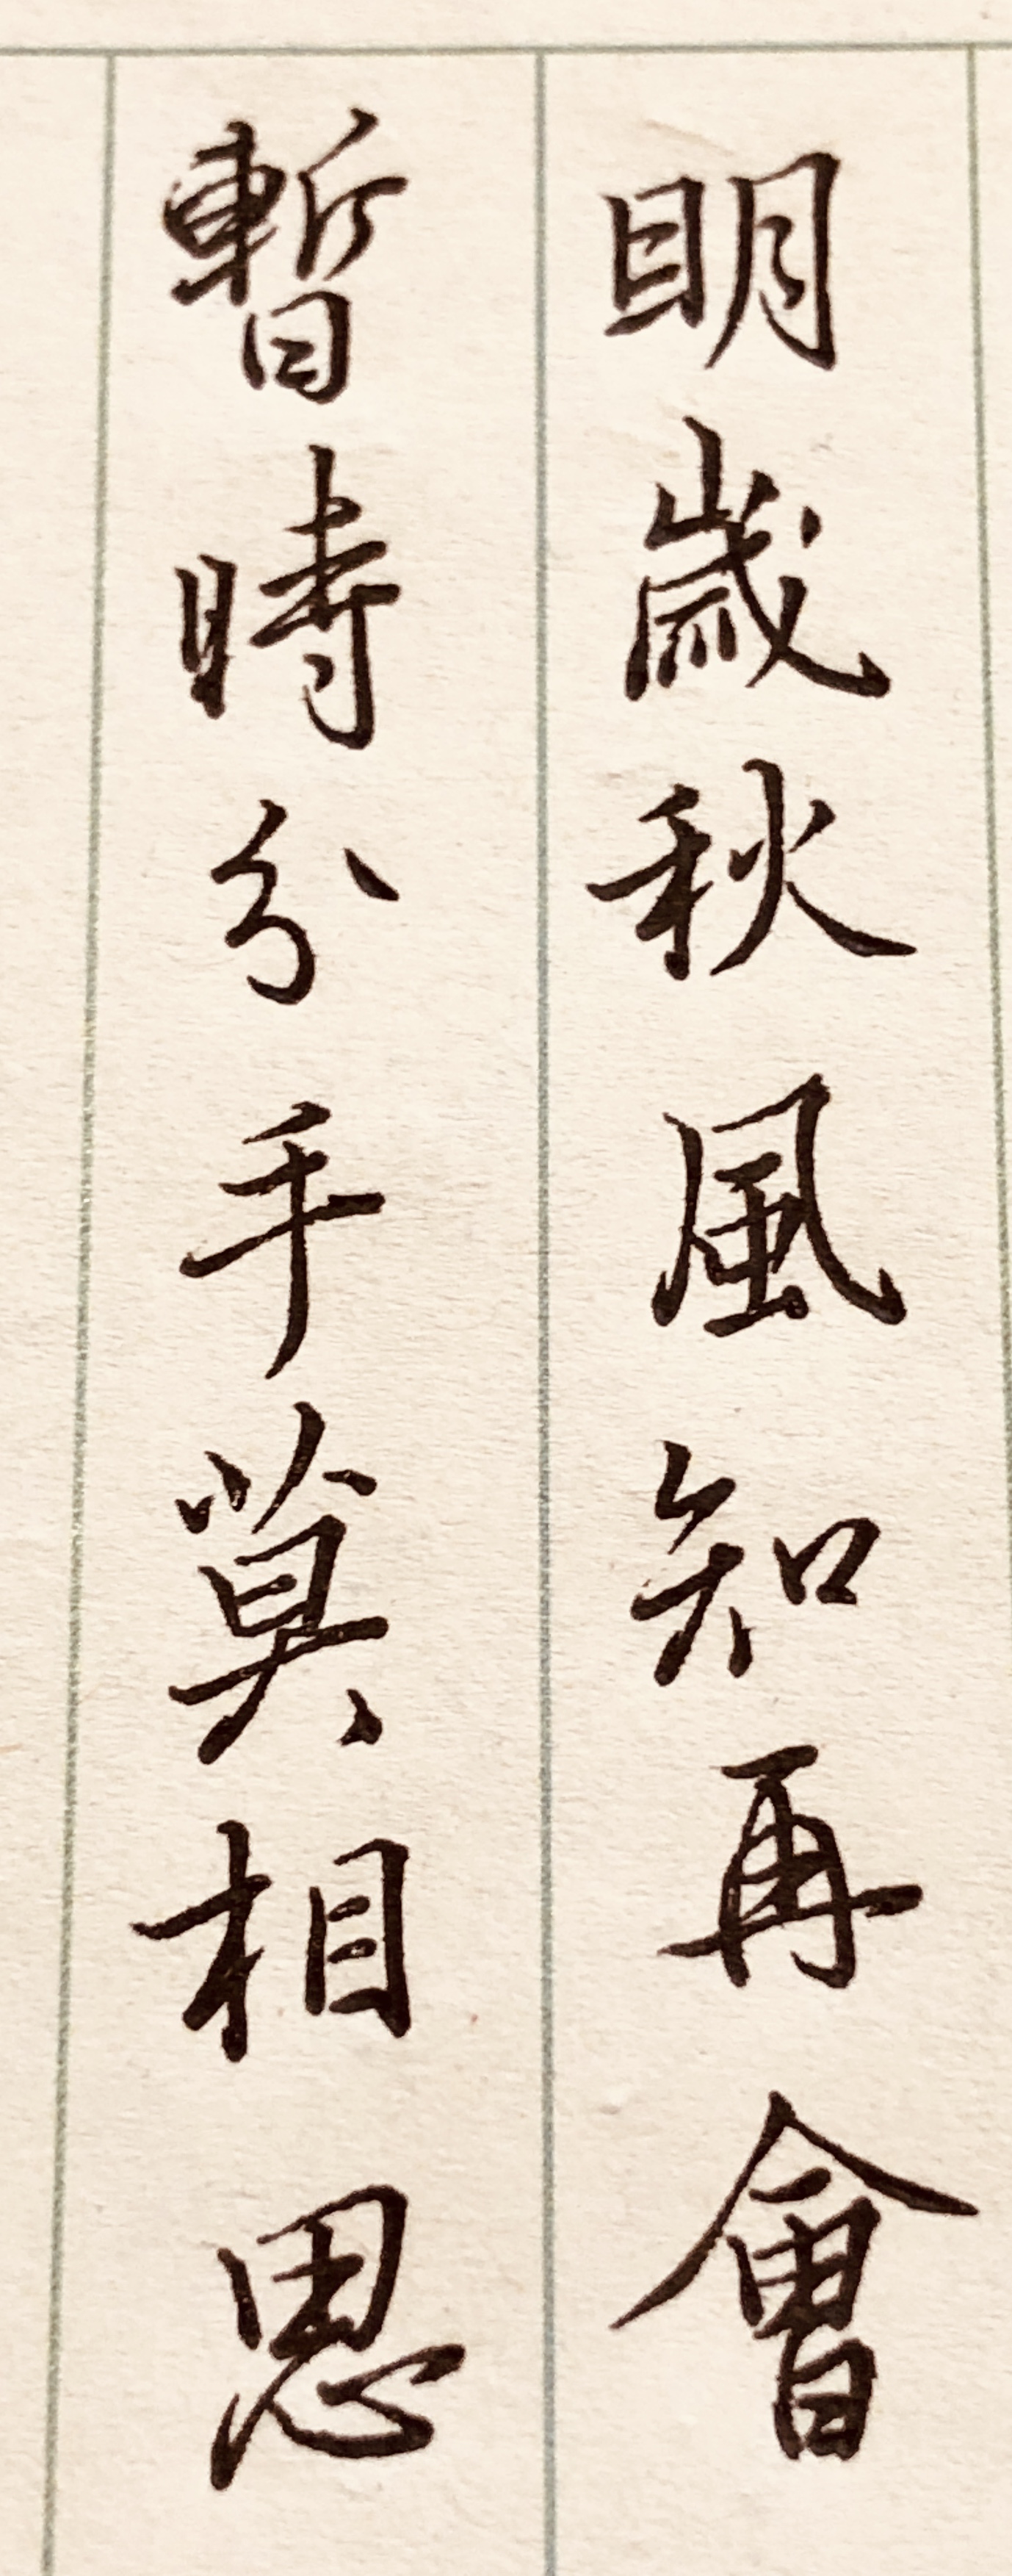 明歲秋風知再會
暫時分手莫相思